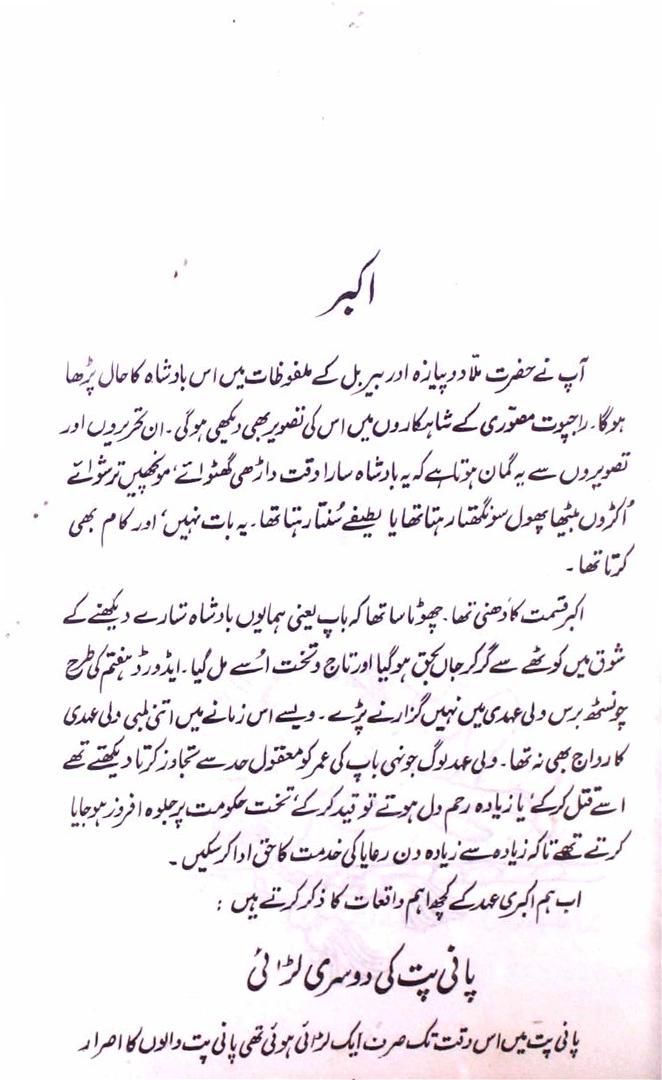 اکبر
آپ نے حضرت ملّا دوپیازہ اور بیربل کے ملفوظات میں اس بادشاہ کا حال پڑھا
ہوگا۔ راجپوت مصوّری کے شاہکاروں میں اس کی تصویر بھی دیکھی ہوگی۔ ان تحریروں اور
تصویروں سے یہ گمان ہوتا ہے کہ یہ بادشاہ سارا وقت داڑھی گھٹوائے، مونچھیں ترشوائے
اُکڑوں بیٹھا پھول سونگھتا رہتا تھا یا لطیفے سُنتا رہتا تھا۔ یہ بات نہیں، اور کام بھی
کرتا تھا۔
اکبر قسمت کا دھنی تھا۔ چھوٹا سا تھا کہ باپ یعنی ہمایوں بادشاہ ستارے دیکھنے کے
شوق میں کوٹھے سے گر کر جاں بحق ہوگیا اور تاج و تخت اُسے مل گیا۔ ایڈورڈ ہفتم کی طرح
چونسٹھ برس ولی عہدی میں نہیں گزارنے پڑے۔ ویسے اس زمانے میں اتنی لمبی ولی عہدی
کا رواج بھی نہ تھا۔ ولی عہد لوگ جونہی باپ کی عمر کو معقول حد سے تجاوز کرتا دیکھتے تھے
اسے قتل کرکے، یا زیادہ رحم دل ہوتے تو قید کرکے، تخت حکومت پر جلوہ افروز ہو جایا
کرتے تھے تاکہ زیادہ سے زیادہ دن رعایا کی خدمت کا حق ادا کر سکیں۔
اب ہم اکبری عہد کے کچھ اہم واقعات کا ذکر کرتے ہیں :
پانی پت کی دوسری لڑائی
پانی پت میں اس وقت تک صرف ایک لڑائی ہوئی تھی پانی پت والوں کا اصرار